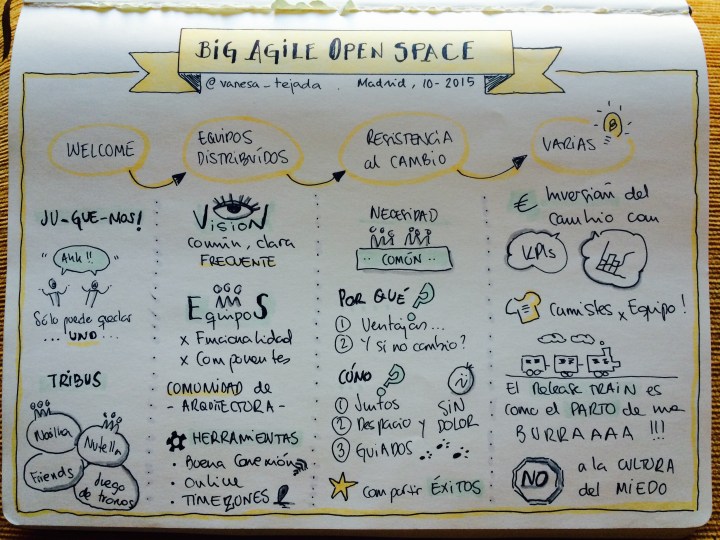 BIG AGILE OPEN SPACE
@vanesa_tejada . Madrid, 10-2015
WELCOME
JU-GUE-MOS!
"Ahh!!"
Sólo puede quedar
... UNO ...
TRIBUS
Nocilla
Nutella
Friends
Juego
de tronos
EQUIPOS
DISTRIBUÍDOS
VISION
común, clara
FRECUENTE
EquipoS
x Funcionalidad
x Componentes
COMUNIDAD de
- ARQUITECTURA -
HERRAMIENTAS
• Buena Conexión
• Online
• TIMEZONES
RESISTENCIA
al CAMBIO
NECESIDAD
·· COMÚN ··
POR QUÉ ?
① Ventajas...
② Y si no cambio?
CÓMO ?
① Juntos
② Despacio y
SIN
DOLOR
③ GUIADOS
Compartir ÉXITOS
VARIAS
8
€ Inversión del
cambio con
KPIs
Camisetas x Equipo!
El Release TRAIN es
como el PARTO de una
BURRAAAA !!!
NO
a la CULTURA
del MIEDO